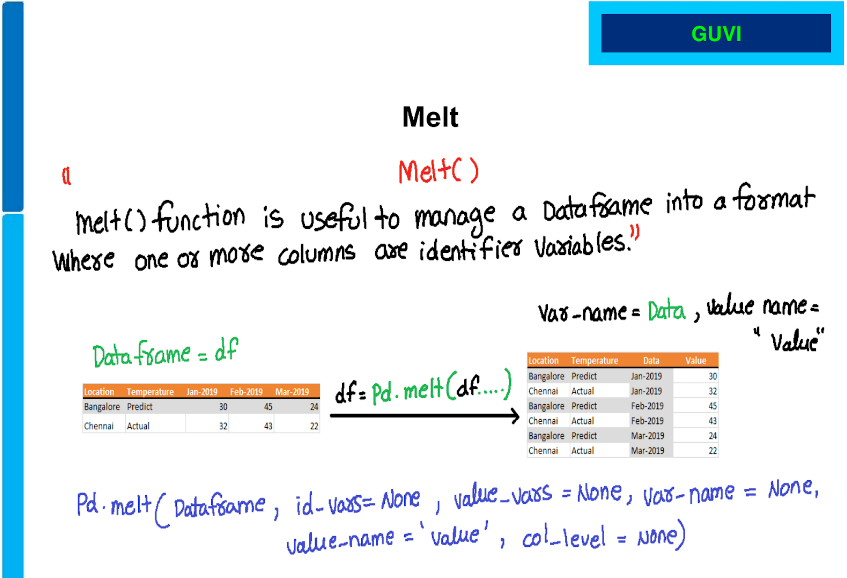 GUVI
Melt
Melt()
"melt() function is useful to manage a Dataframe into a format
Where one or more columns are identifier Variables."
Var-name = Data, value name =
"Value"
Dataframe = df
Location Temperature Jan-2019 Feb-2019 Mar-2019
Bangalore Predict 30 45 24
Chennai Actual 32 43 22
df = Pd.melt(df.....)
Location Temperature Data Value
Bangalore Predict Jan-2019 30
Chennai Actual Jan-2019 32
Bangalore Predict Feb-2019 45
Chennai Actual Feb-2019 43
Bangalore Predict Mar-2019 24
Chennai Actual Mar-2019 22
Pd.melt(Dataframe, id-vars= None, value_vars = None, var-name = None,
value_name = 'value', col_level = None)